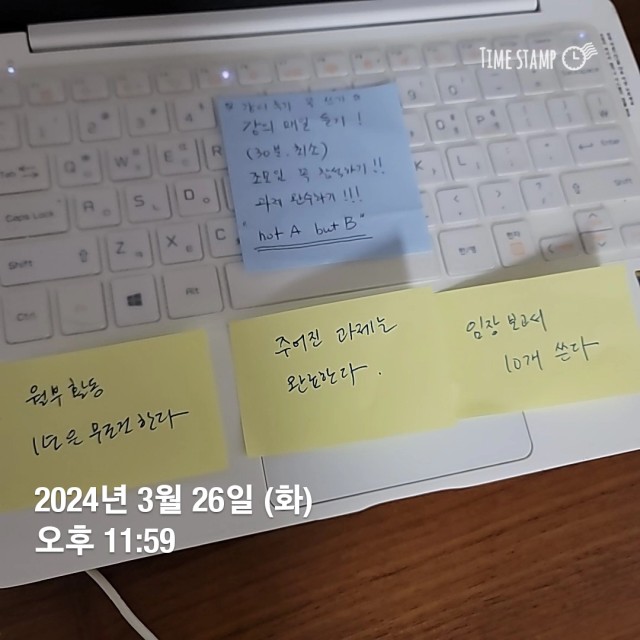 TIME STAMP
강의 매일 듣기!
(30분. 최소)
조모임 꼭 참석하기!!
과제 완수하기!!!
"not A but B"
원부활동
1년은 무조건 한다
주어진 과제는
완료한다.
임장보고서
10개 쓴다
2024년 3월 26일 (화)
오후 11:59
Q
W
E
R
A
S
D
F
Caps Lock
Shift
Z
X
C
Ctrl
Alt
K
L
한/영